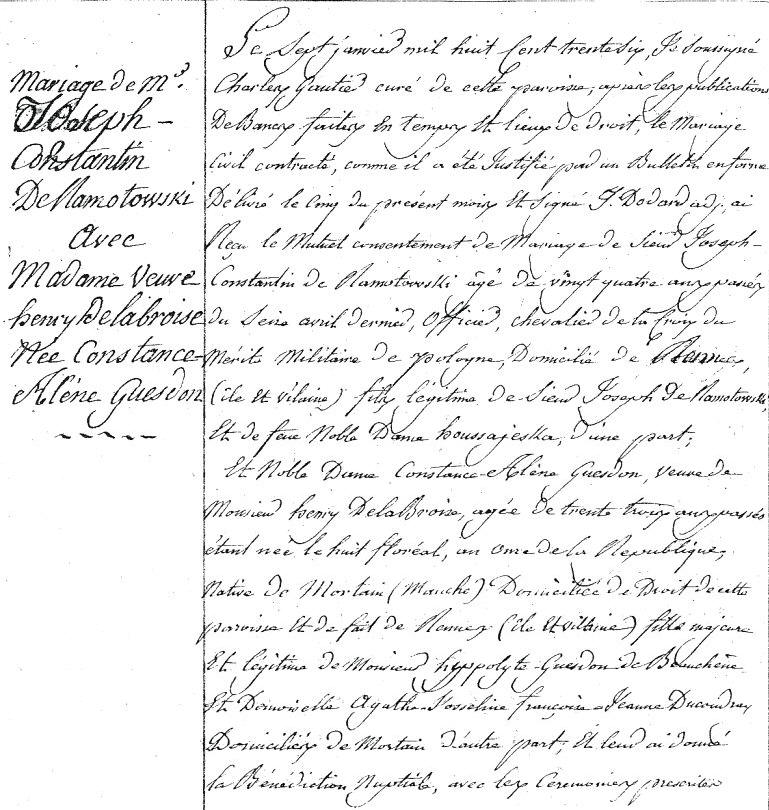 Mariage de Mr.
Joseph-
Constantin
De Ramotowski
avec
Madame veuve
henry Delabroise
Née Constance-
Alène Guesdon
Le Sept janvier mil huit Cent trente Six, Je Soussigné
Charles Gautier curé de cette paroisse, après les publications
De Bancs faites En temps Et lieux de droit, le Mariage
Civil contracté, comme il a été Justifié par un Bulletin en forme
Délivré le Cinq du présent mois Et Signé J. Dodard adj, ai
Reçu le Mutuel consentement de Mariage de Sieur Joseph-
Constantin de Ramotowski âgé de vingt quatre ans passés
du Seize avril dernier, Officier, chevalier de la Croix du
Mérite Militaire de pologne, Domicilié de Rennes,
(ile Et vilaine) fils légitime de Sieur Joseph de Ramotowski,
Et de feue Noble Dame houssajeska, d'une part;
Et Noble Dame Constance-Alène Guesdon, veuve de
Monsieur henry DelaBroise, agée de trente trois ans passés
étant née le huit floréal, an onze de la République,
Native de Mortain (Manche) Domiciliée de Droit de cette
paroisse Et de fait de Rennes (ile Et vilaine) fille majeure
Et légitime de Monsieur hyppolyte Guesdon de Beauchêne
Et Demoiselle Agathe-Josseline françoise-Jeanne Ducoudray
Domiciliés de Mortain d'autre part; Et leur ai donné
la Bénédiction Nuptiale, avec les Cérémonies prescrites